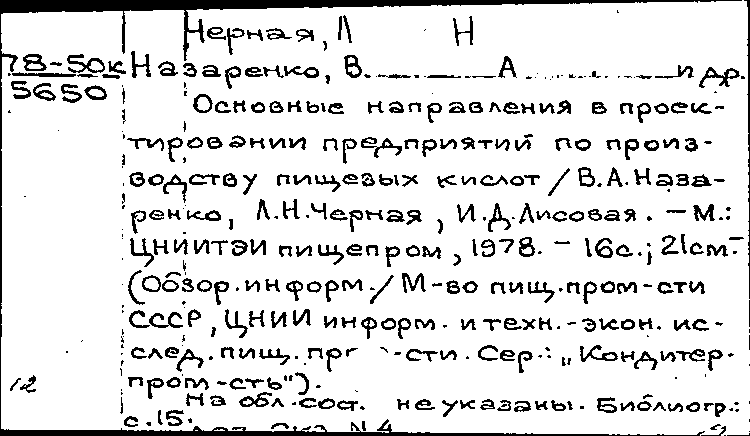 Черная, Л Н
78-50к Назаренко, В. А. и др.
5650
Основные направления в проек-
тировании предприятий по произ-
водству пищевых кислот / В.А.Наза-
ренко, Л.Н.Черная, И.Д.Лисовая. – М.:
ЦНИИТЭИ пищепром, 1978. – 16с.; 21см. –
(Обзор.информ./ М-во пищ.пром-сти
СССР, ЦНИИ информ. и техн.-экон. ис-
след. пищ. -сти. Сер.: „Кондитер.
12 пром-сть").
На обл.сост. не указаны. Библиогр.:
с.15.